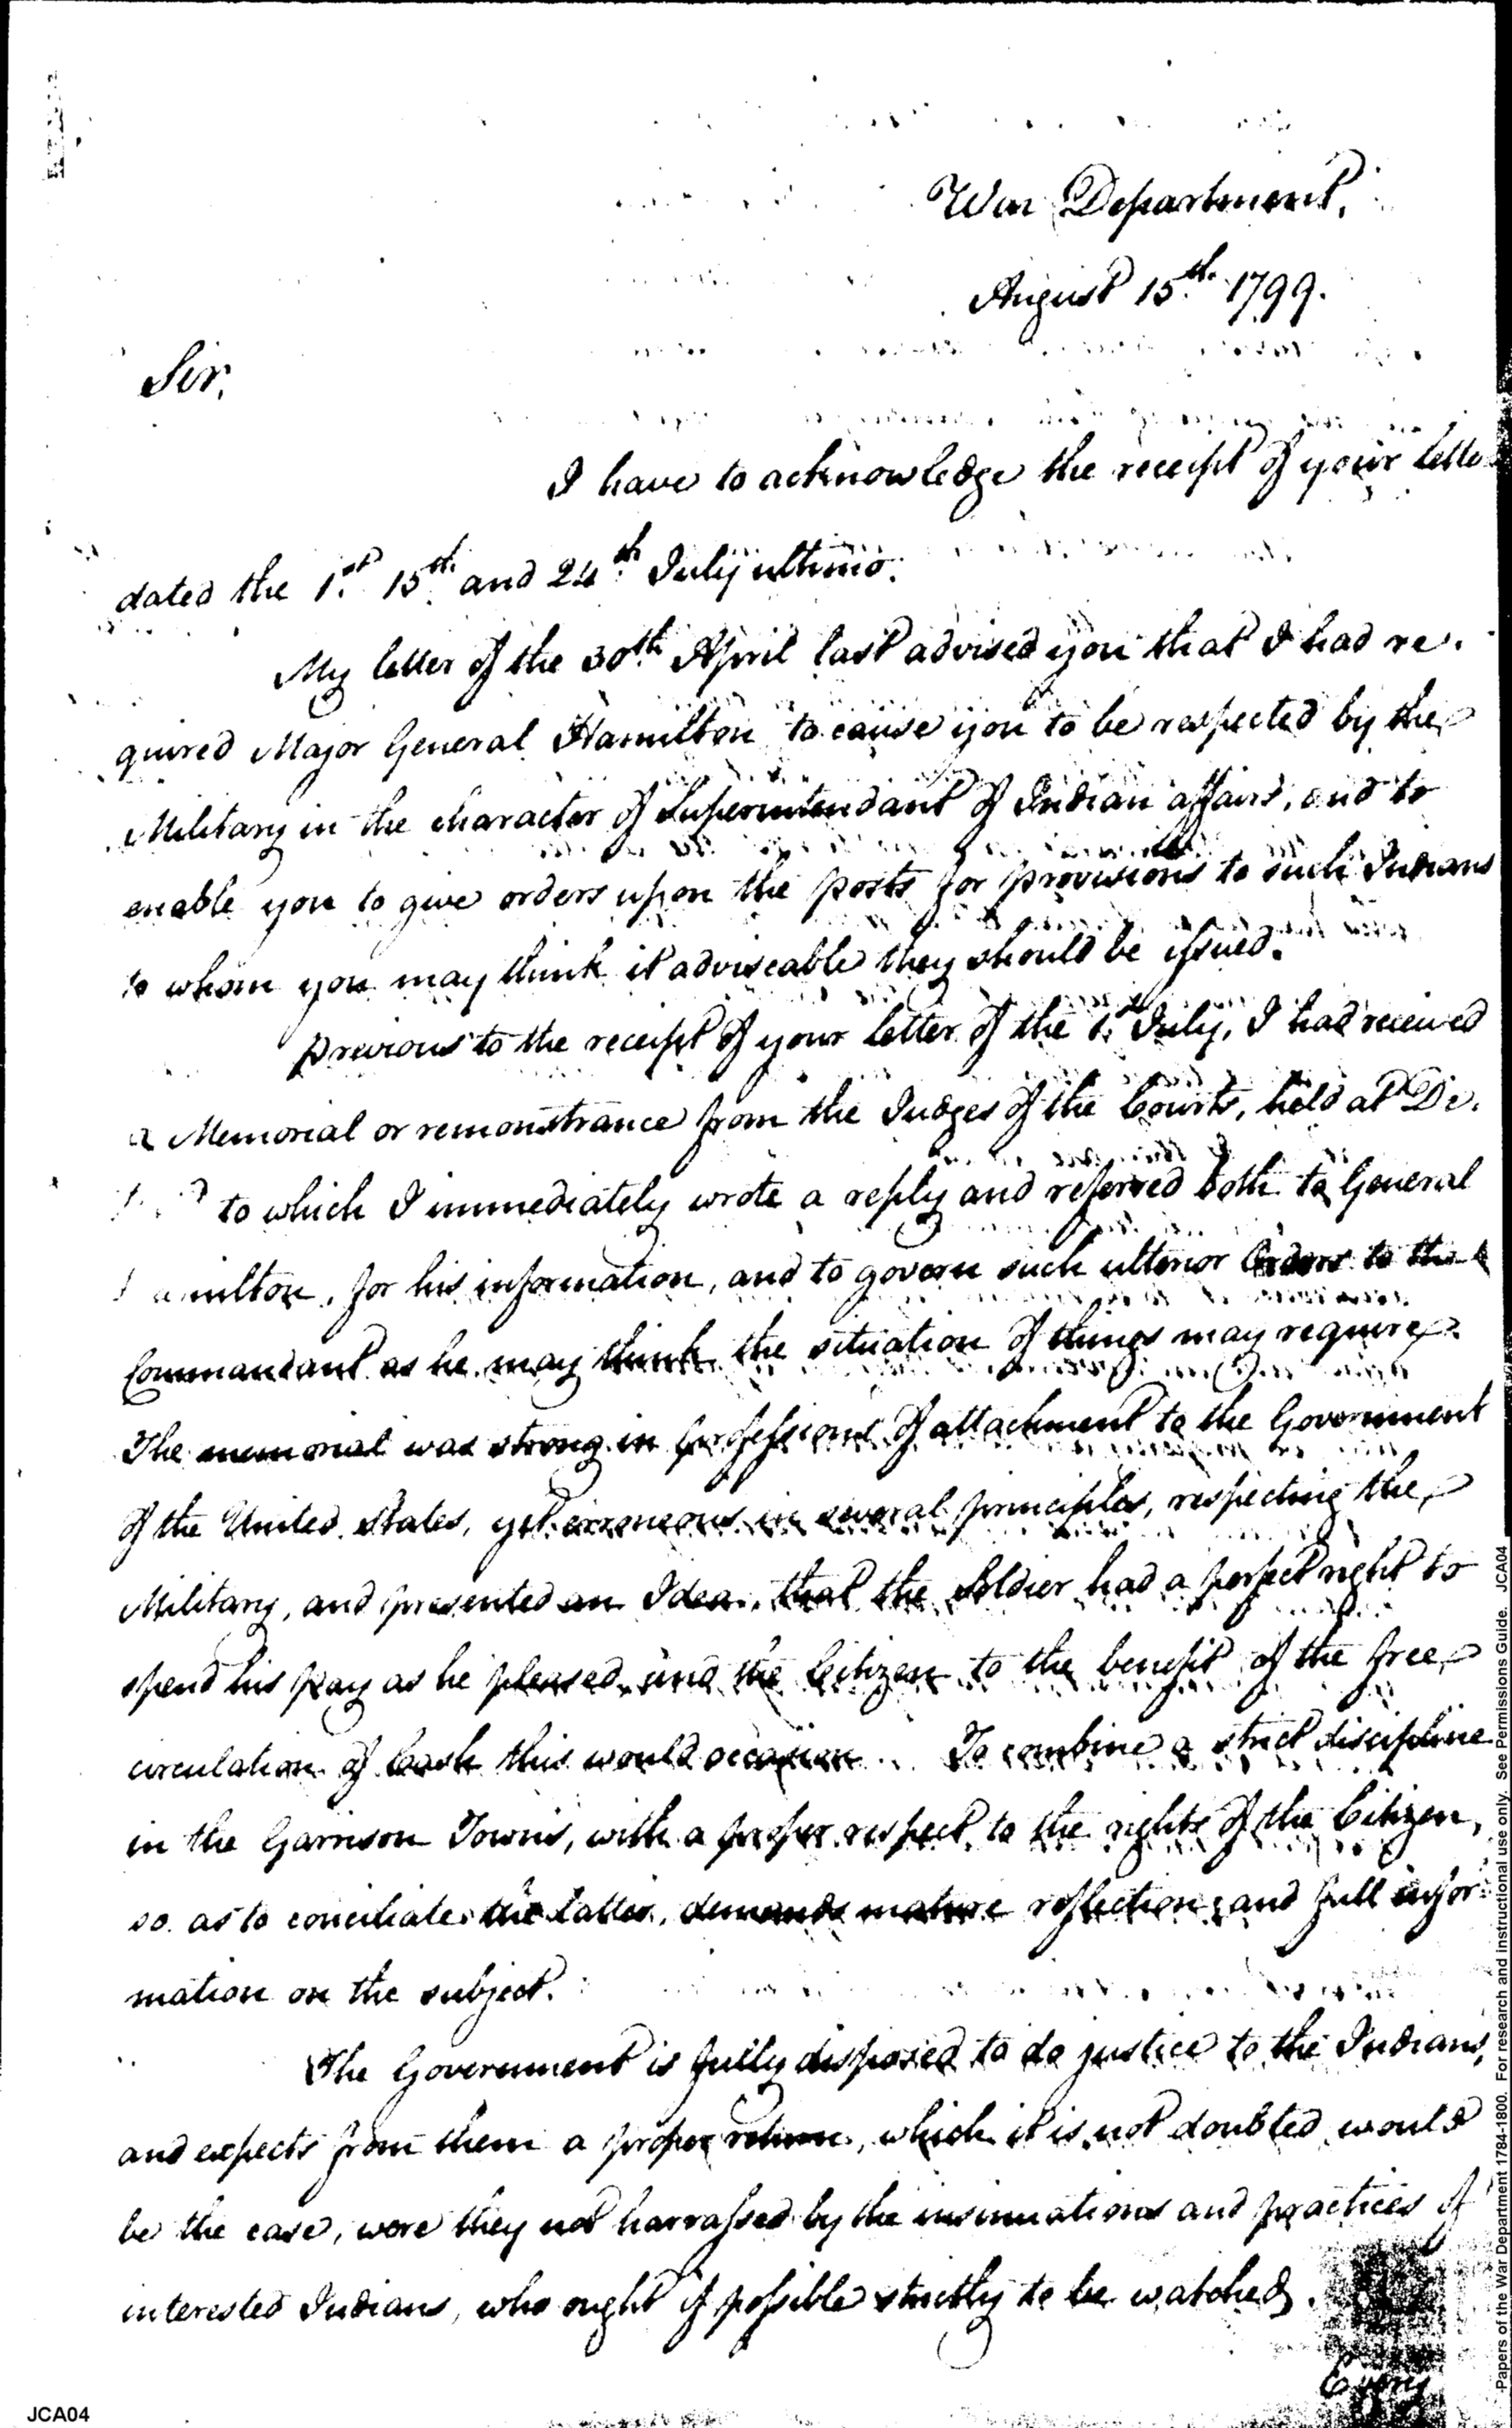 War Department,
August 15th. 1799.
Sir,
I have to acknowledge the receipt of your lette
dated the 1st. 15th. and 24th. July ultimo.
My letter of the 30th. April last advised you that I had re-
quired Major General Hamilton to cause you to be respected by the
Military in the character of Superintendant of Indian affairs, and to
enable you to give orders upon the posts for provisions to such Indians
to whom you may think it adviseable they should be issued.
Previous to the receipt of your letter of the 1st. July, I had received
a Memorial or remonstrance from the Judges of the Courts, held at De-
to which I immediately wrote a reply and referred both to General
milton, for his information, and to govern such ulterior Orders to the
Commandant as he may think the situation of things may require.
The memorial was strong in professions of attachment to the Government
of the United States, yet erroneous in several principles, respecting the
Military, and presented an Idea, that the Soldier had a perfect right to
spend his pay as he pleased and the Citizen to the benefit of the free
circulation of Cash this would occasion. To combine a strict discipline
in the Garrison Towns, with a proper respect to the rights of the Citizen,
so as to conciliate the latter, demands mature reflection, and full infor-
mation on the subject.
The Government is fully disposed to do justice to the Indians,
and expects from them a proper return, which it is not doubted would
be the case, were they not harrassed by the insinuations and practices of
interested Indians, who ought if possible strictly to be watched.
Every
JCA04
Papers of the War Department 1784-1800. For research and instructional use only. See Permissions Guide. JCA04